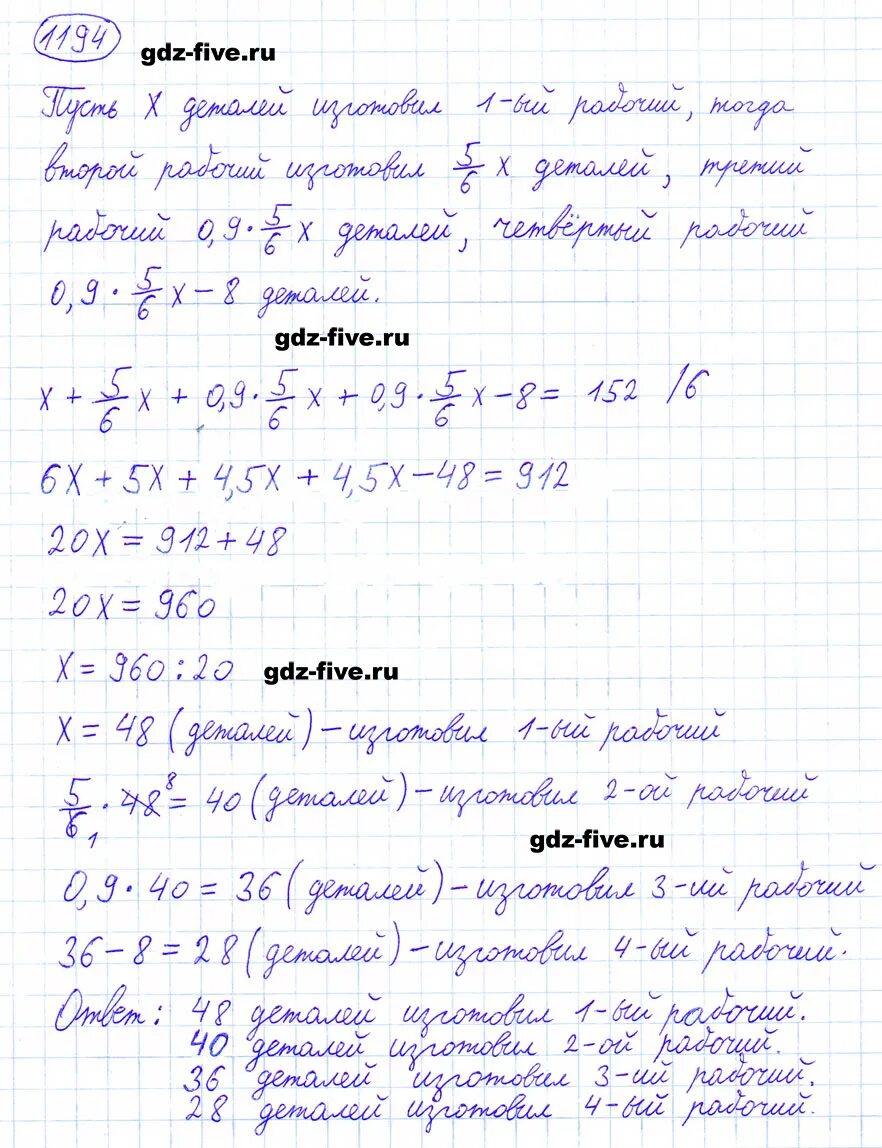 1194
gdz-five.ru
Пусть х деталей изготовил 1-ый рабочий, тогда
второй рабочий изготовил 5/6 х деталей, третий
рабочий 0,9 · 5/6 х деталей, четвёртый рабочий
0,9 · 5/6 х – 8 деталей.
gdz-five.ru
х + 5/6 х + 0,9 · 5/6 х + 0,9 · 5/6 х – 8 = 152 /6
6х + 5х + 4,5х + 4,5х – 48 = 912
20х = 912 + 48
20х = 960
х = 960 : 20
gdz-five.ru
х = 48 (деталей) – изготовил 1-ый рабочий
5/6 1 · 48 8 = 40 (деталей) – изготовил 2-ой рабочий
gdz-five.ru
0,9 · 40 = 36 (деталей) – изготовил 3-ий рабочий
36 – 8 = 28 (деталей) – изготовил 4-ый рабочий.
Ответ: 48 деталей изготовил 1-ый рабочий.
40 деталей изготовил 2-ой рабочий.
36 деталей изготовил 3-ий рабочий.
28 деталей изготовил 4-ый рабочий.